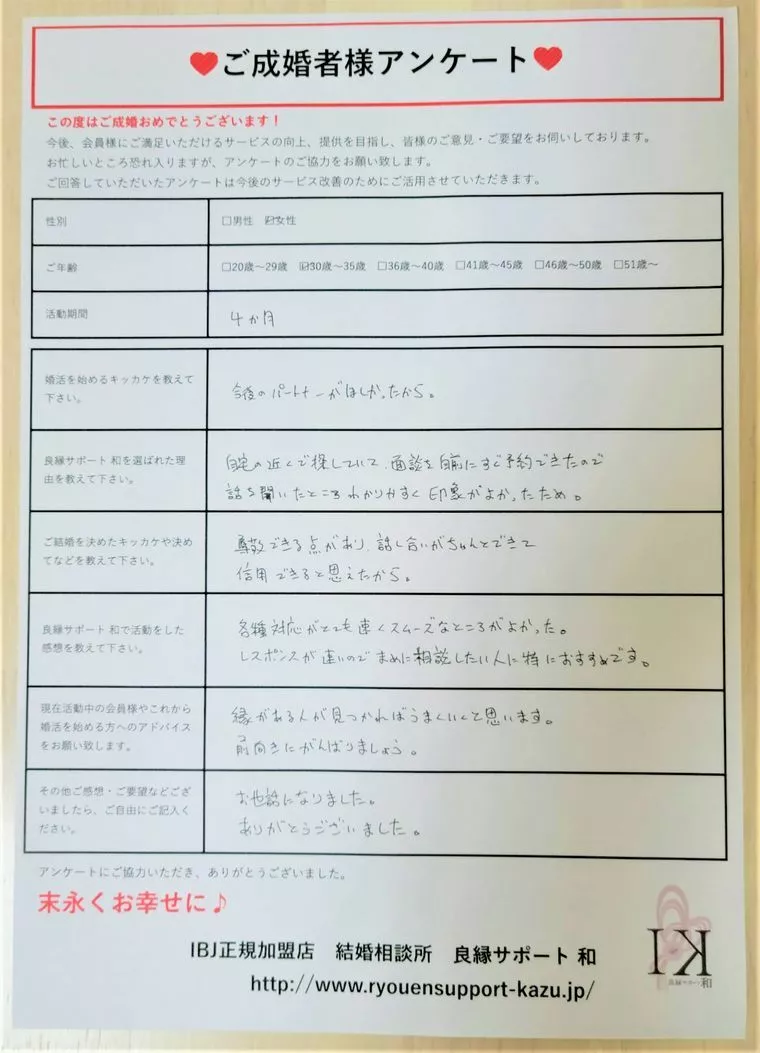 ♥ご成婚者様アンケート♥
この度はご成婚おめでとうございます！
今後、会員様にご満足いただけるサービスの向上、提供を目指し、皆様のご意見・ご要望をお伺いしております。
お忙しいところ恐れ入りますが、アンケートのご協力をお願い致します。
ご回答していただいたアンケートは今後のサービス改善のためにご活用させていただきます。
性別
□男性 ☑女性
ご年齢
□20歳～29歳 ☑30歳～35歳 □36歳～40歳 □41歳～45歳 □46歳～50歳 □51歳～
活動期間
4か月
婚活を始めるキッカケを教えて
下さい。
今後のパートナーがほしかったから。
良縁サポート 和を選ばれた理
由を教えて下さい。
自宅の近くで探していて、面談を自前にすぐ予約できたので
話を聞いたところわかりやすく印象がよかったため。
ご結婚を決めたキッカケや決め
てなどを教えて下さい。
尊敬できる点があり、話し合いがちゃんとできて
信用できると思えたから。
良縁サポート 和で活動をした
感想を教えて下さい。
各種対応がとても速くスムーズなところがよかった。
レスポンスが速いのでまめに相談したい人に特におすすめです。
現在活動中の会員様やこれから
婚活を始める方へのアドバイス
をお願い致します。
縁がある人が見つかればうまくいくと思います。
前向きにがんばりましょう。
その他ご感想・ご要望などござ
いましたら、ご自由にご記入く
ださい。
お世話になりました。
ありがとうございました。
アンケートにご協力いただき、ありがとうございました。
末永くお幸せに♪
IBJ正規加盟店 結婚相談所 良縁サポート 和
http://www.ryouensupport-kazu.jp/
KI
良縁サポート 和